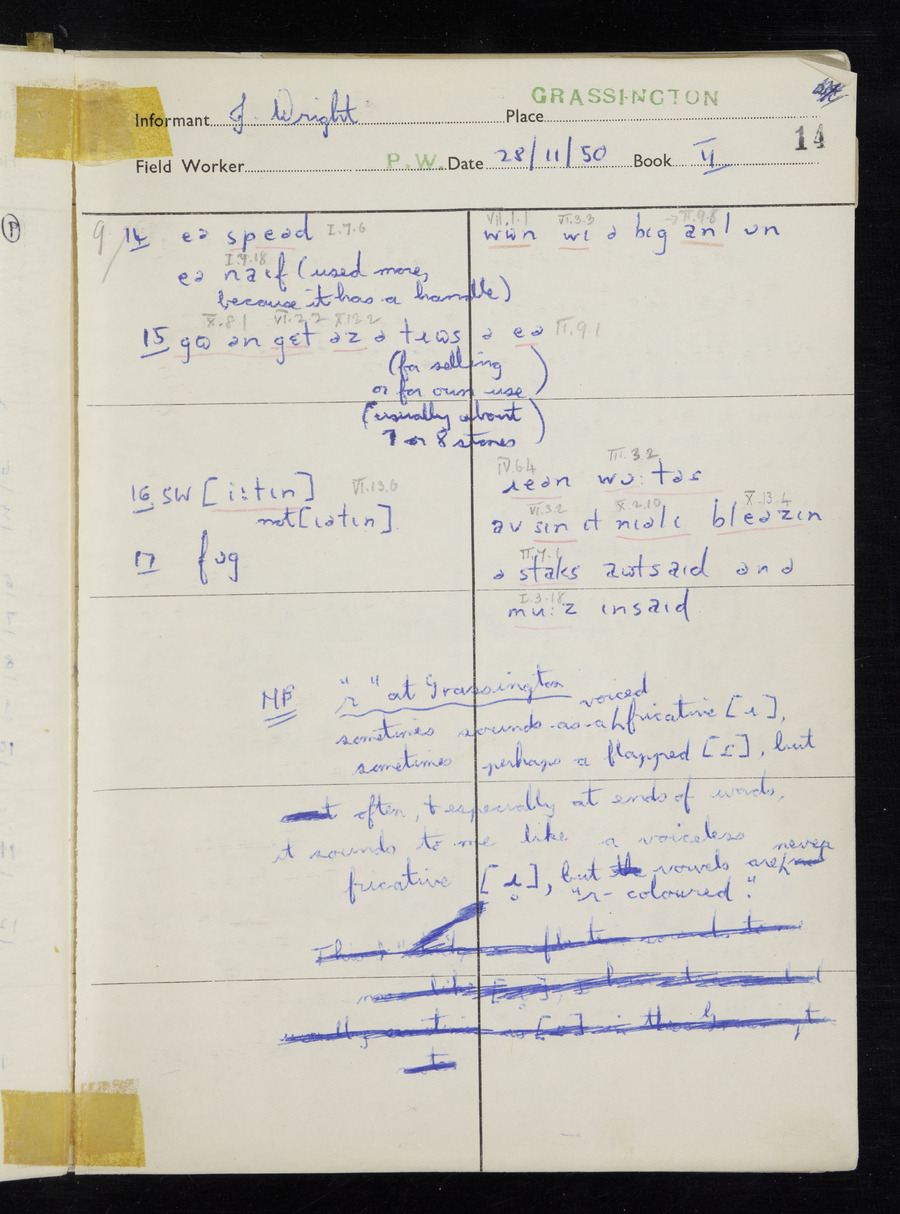 GRASSINGTON
Informant J. Wright Place
14
Field Worker P.W. Date 28/11/50 Book II
P
9 14 eə speəd I.7.6
I.7.18
eə naɪf (used more,
because it has a handle)
X.8.1 VI.2.2
15 gɷ ən gɛt əz ə tɹɛɷs ə eə II.9.1
(for selling
or for own use)
(usually about
7 or 8 stones)
16 SW [i:tɪn] VI.13.6
not [ɪətɪn]
17 fɒg
VII.1.1 VI.3.3 II.9.8
wɪ ə bɪg anl ɒn
IV.6.4 III.3.2
wɷ:təs
VI.3.2 X.2.10 X.13.4
av sɪn ɪt nɪəlɪ bleəzɪn
II.7.1
ə staks aɷtsaɪd ənə
I.3.18
mu:z ɪnsaɪd
NB "r" at Grassington
sometimes sounds as a voiced fricative [ɹ],
sometimes perhaps a flapped [ɾ], but
often, & especially at ends of words,
it sounds to me like a voiceless
fricative [ɹ̥], but vowels are never
"r-coloured".